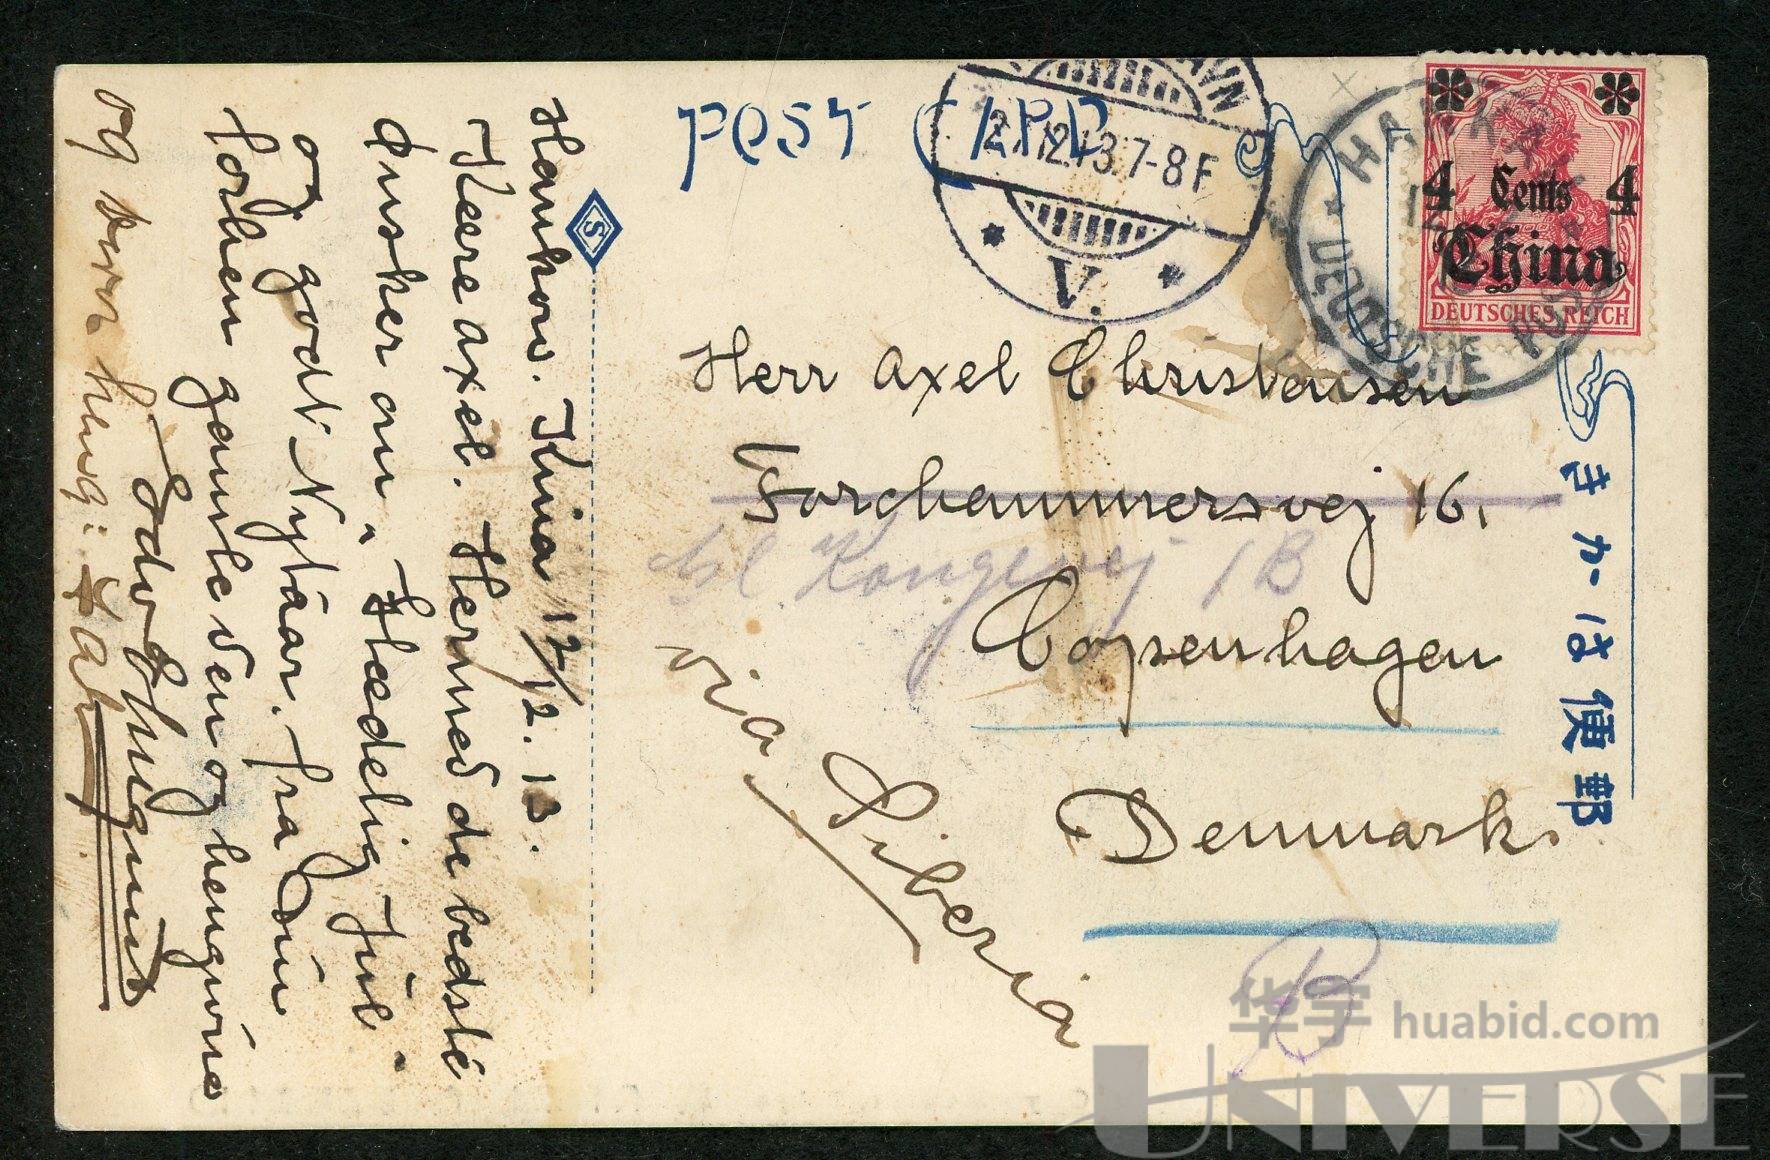 POST CARD
HAVN
12.13.7-8F
V.
HANKAU
DEUTSCHE POST
4 Cents 4
China
DEUTSCHES REICH
きかは便郵
S
Herr Axel Christensen
Forchammersvej 16.
Gl. Kongevej 1B
Copenhagen
Denmark.
via Siberia
B
Hankow. Kina 12/12.13.
Kære Axel. Hermed de bedste
Ønsker om "Glædelig Jul"
og godt Nytaar. fra Din
forhen gamle Ven og
og
華宇 huabid.com
UNIVERSE